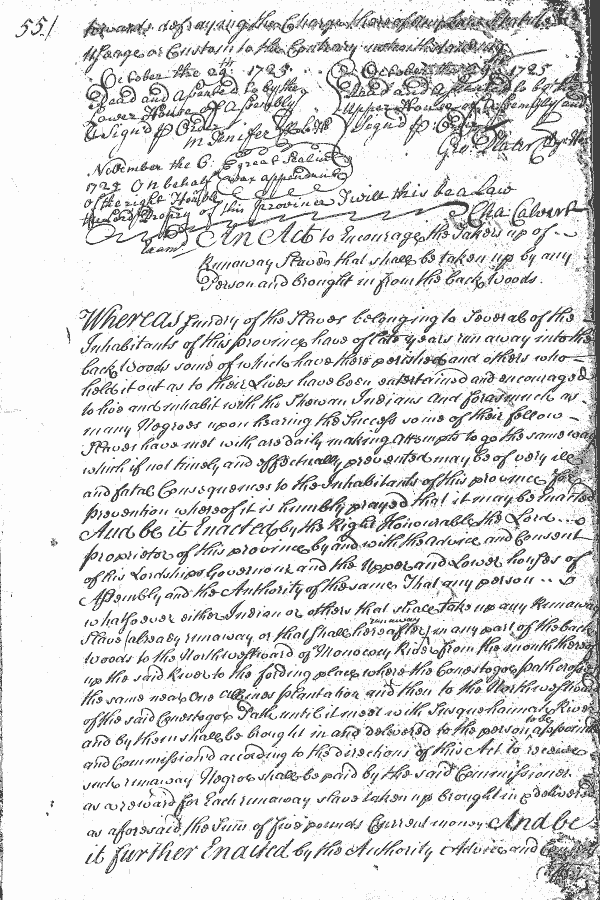 55./
towards defraying the Charge thereof any Law Statute
Usage or Custom to the Contrary notwithstanding
October the 29th. 1725.
Read and assented to by the
Lower House of Assembly
Sign'd p Order
M Jenifer
October the 29th 1725
Read and assented to by the
Upper House of Assembly and
Sign'd p Order
Geo. Plater
November the 6:
1725 On behalf
of the right Honble
the Lord Propry of this province I will this be a Law
great Seale
was appendant
Cha Calvert
Exam'd
An Act to Encourage the takers up of
Runaway Slaves that shall be taken up by any
Person and brought in from the back Woods.
Whereas Sundry of the Slaves belonging to Several of the
Inhabitants of this province have of late years run away into the
back Woods some of which have there perished and others who
held it out as to their Lives have been entertained and encouraged
to live and inhabit with the Shewan Indians and forasmuch as
many Negroes upon hearing the Success some of their fellow
Slaves have met with are daily making attempts to go the same way
which if not timely and effectually prevented may be of very ill
and fatal Consequences to the Inhabitants of this province for
prevention whereof it is humbly prayed that it may be Enacted
And be it Enacted by the Right Honourable the Lord
proprietor of this province by and with the advice and Consent
of his Lordships Governour and the Upper and Lower houses of
Assembly and the Authority of the same That any person
whatsoever either Indian or others that shall take up any Runaway
Slave (already runaway or that shall hereafter runaway) in any part of the back
Woods to the Northwestward of Monocccy River from the mouth thereof
up the said River to the fording place where the Conestogoe path crosses
the same near One Albines plantation and then to the Northwestward
of the said Conestogoe Path until it meet with Susquehannah River
and by them shall be brought in and delivered to the person to be appointed
and Commissiond according to the directions of this Act to receive
such runaway Negroe shall be paid by the said Commissioner
as a reward for Each runaway slave taken up brought in & delivered
as aforesaid the Sum of five pounds Current money And be
it further Enacted by the Authority Advice and Consent